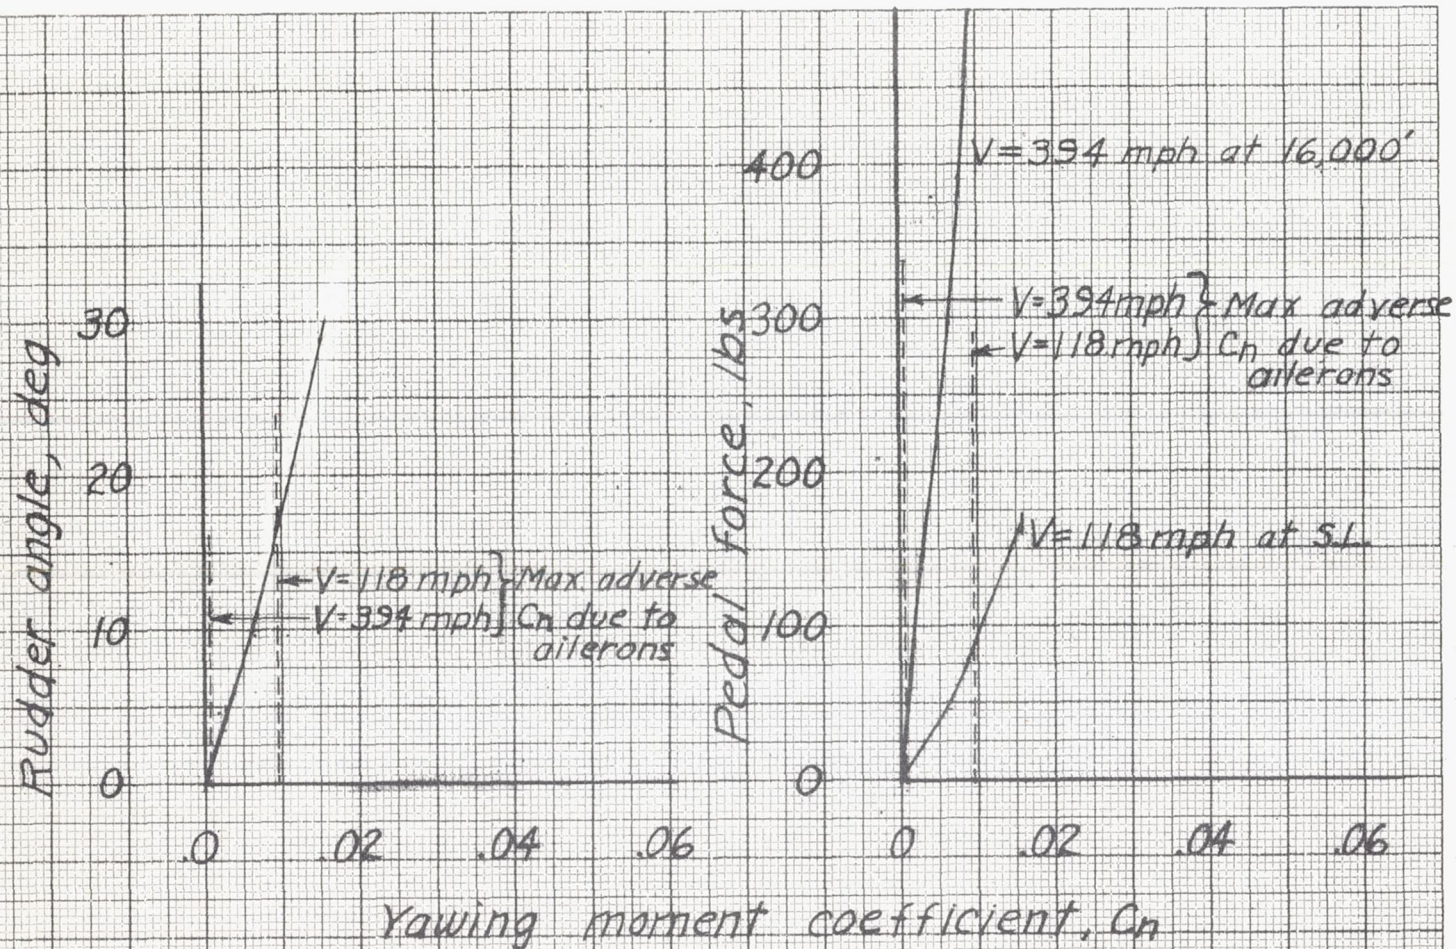 Rudder angle, deg
30
20
10
0
.0 .02 .04 .06
V=118 mph } Max adverse
V=394 mph } Cn due to
ailerons
Pedal force, lbs
400
300
200
100
0
0 .02 .04 .06
V=394 mph at 16,000'
V=394mph } Max adverse
V=118 mph } Cn due to
ailerons
V=118 mph at S.L.
Yawing moment coefficient, Cn